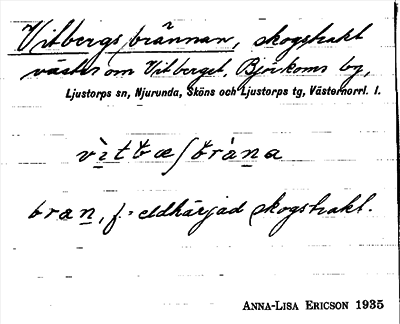 Vitbergsbrännan, skogstrakt
väster om Vitberget, Björkoms by,
Ljustorps sn, Njurunda, Sköns och Ljustorps tg, Västernorrl. l.
vìtbæʃbràna
bran, f. = eldhärjad skogstrakt.
ANNA-LISA ERICSON 1935